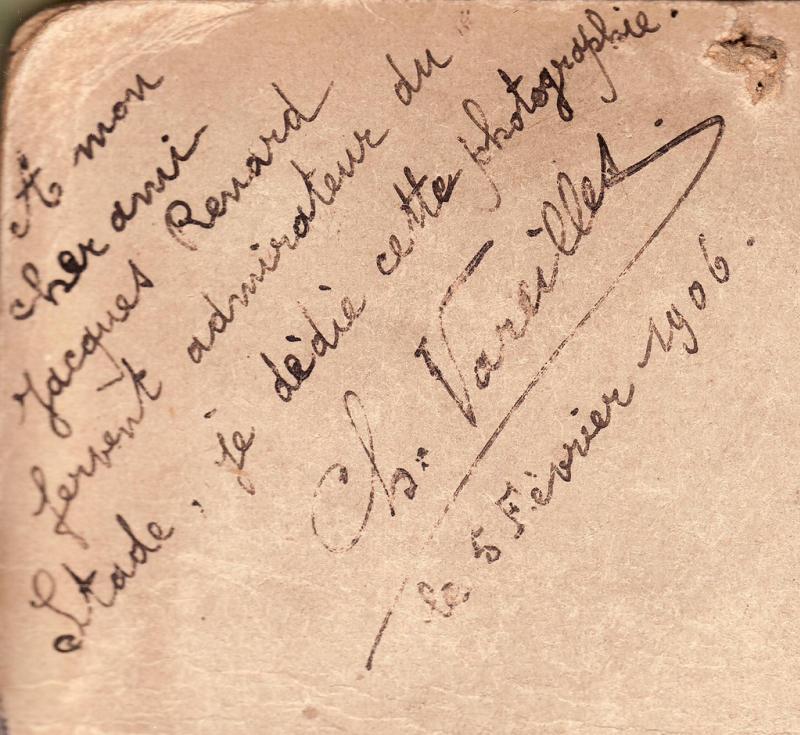 A mon
cher ami
Jacques Renard
fervent admirateur du
Stade, je dédie cette photographie.
Ch: Vareilles.
le 5 Février 1906.